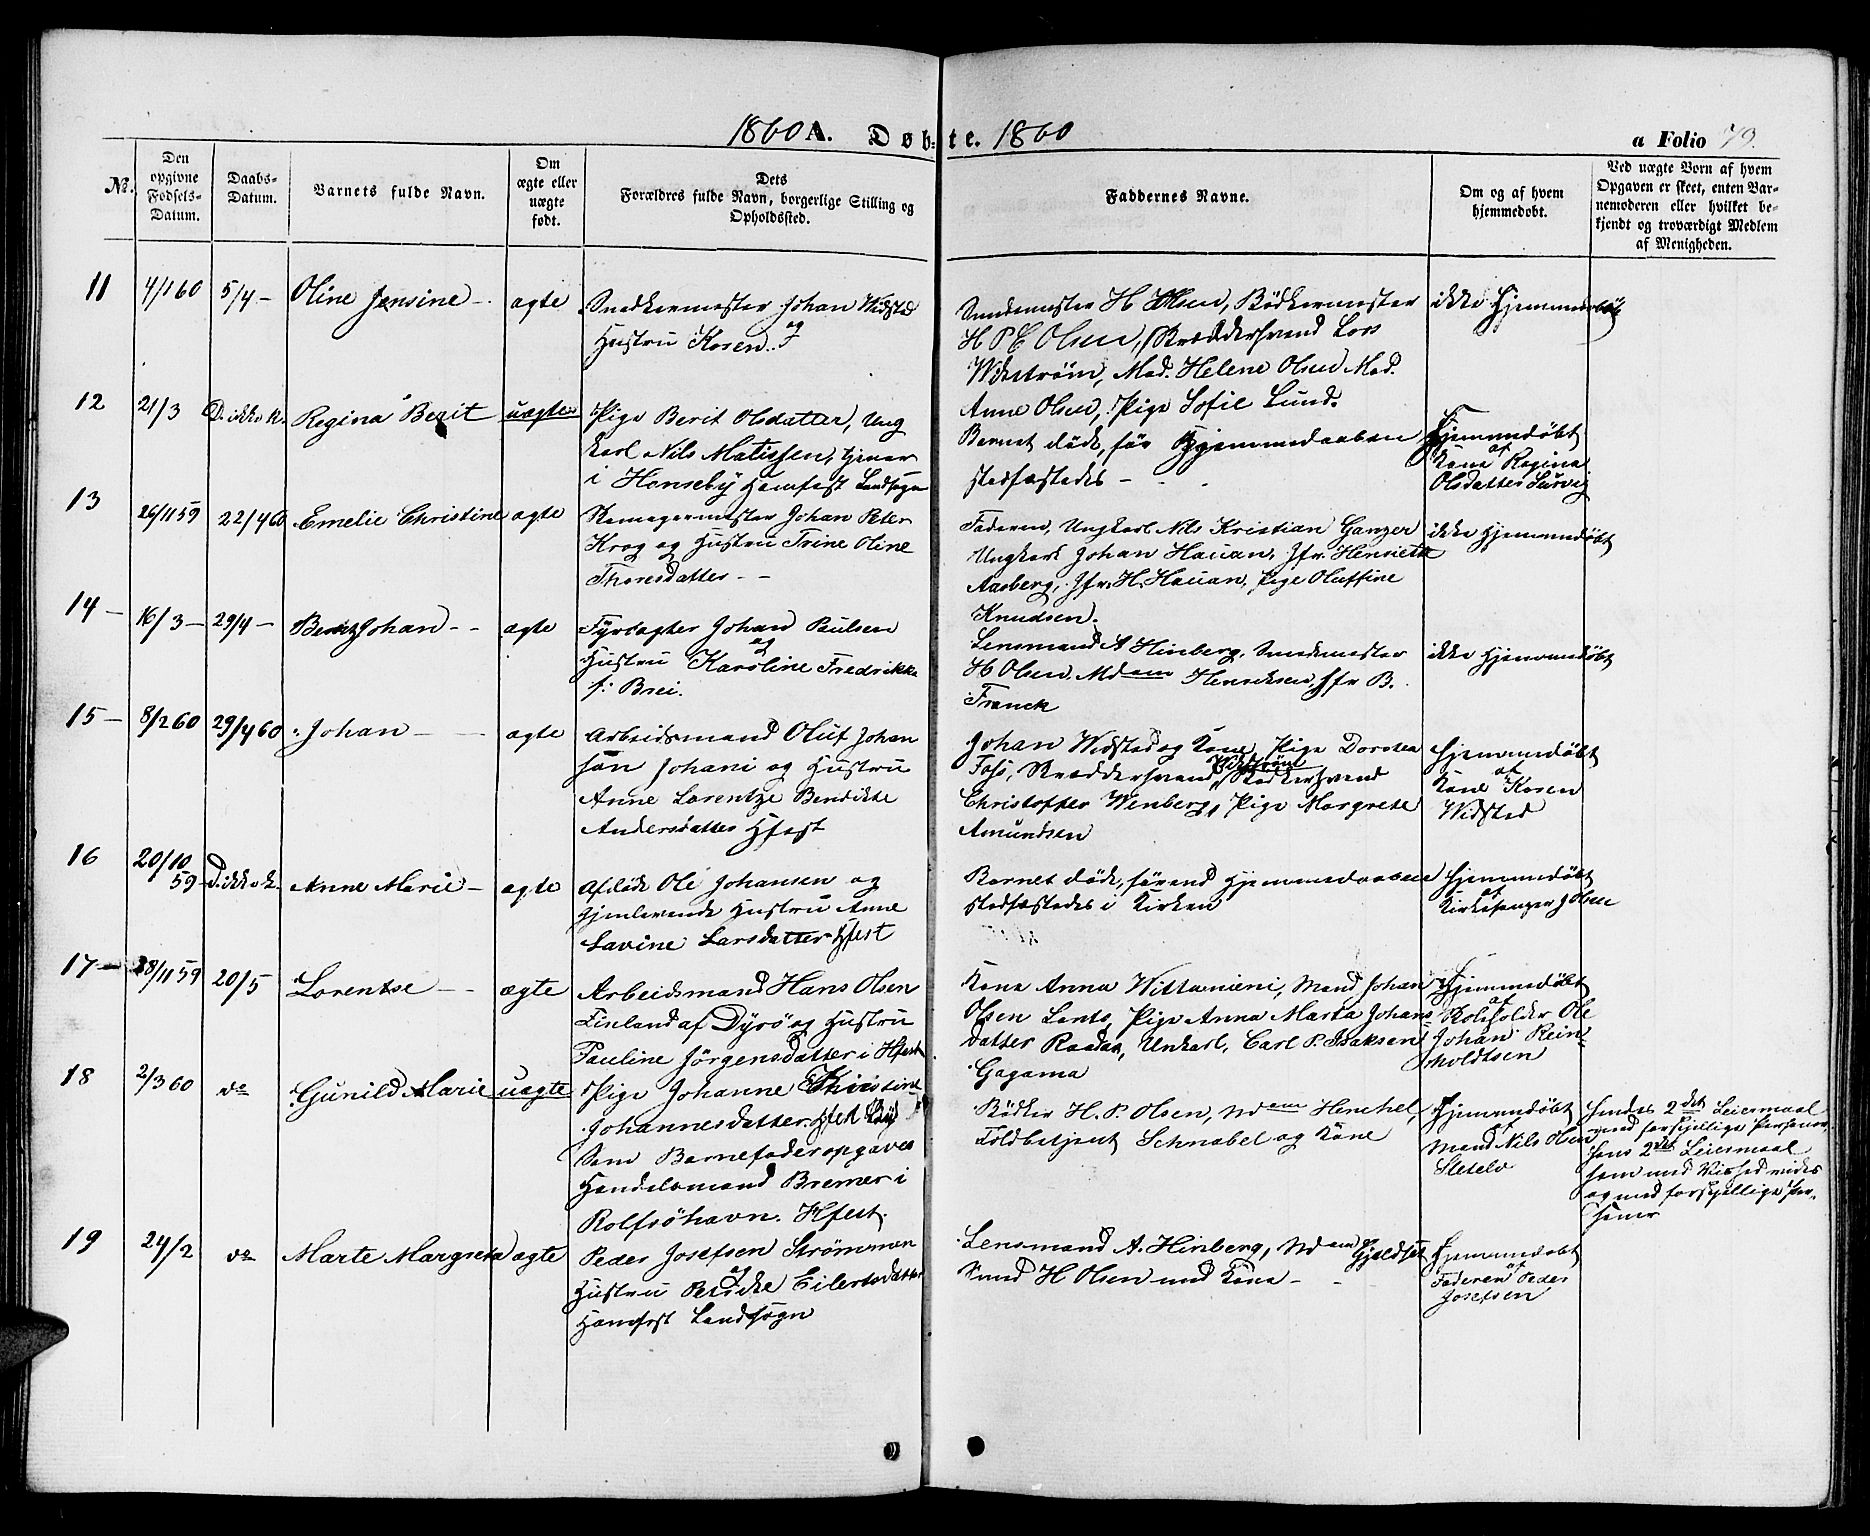 1860 A. Døbte. 1860
a Folio 79.
No.
Den opgivne Fødsels-Datum.
Daabs-Datum.
Barnets fulde Navn.
Om ægte eller uægte født.
Dets Forældres fulde Navn, borgerlige Stilling og Opholdssted.
Faddernes Navne.
Om og af hvem hjemmedøbt.
Ved uægte Børn af hvem
Opgaven er skeet, enten Bar-
nemoderen eller hvilket be-
kjendt og troværdigt Medlem
af Menigheden.
11 4/1 60 5/4 - Oline Jensine - ægte
Snedkermester Johan Widsted
og
Hustru Karen.
Smedemester H Olsen, Bødkermester
H P E Olsen, Skræddersvend Lars
Wikstrøm, Mad. Helene Olsen Mad.
Anne Olsen, Pige Sofie Lund.
ikke hjemmedøbt
12 21/3 D. ikke k. Regina Berit uægte
Pige Berit Olsdatter, Ung
karl Nils Matissen, tjener
i Hønseby Hamfest Landsogn
Barnet døde, før Hjemmedaaben
stadfæstedes -
Hjemmedøbt
af
Kone Regina
Olsdatter Survig
13 26/11 59 22/4 60 Emelie Christine ægte
Rebslagermester Johan Peter
Krog og Hustru Trine Oline
Thoresdatter - -
Faderen, Ungkarl Nils Kristian Ganzer
Ungkarl Johan Hauan, Jfr. Henriette
Aasberg, Jfr. H. Hauan, Pige Oluffine
Knudsen.
ikke hjemmedøbt
14 - 16/3 - 29/4 - Bernt Johan - - ægte
Fyrvogter Johan Paulsen
og
Hustru Karoline Fredrikke
f: Brei.
Lensmand A Hinberg, Smedemester
H Olsen, Mdem Henriksen, Jfr B.
Franck
ikke hjemmedøbt
15 - 8/2 60 29/4 60 Johan - - ægte
Arbeidsmand Oluf Johan
sən Johani og Hustru
Anne Lorentze Bendikte
Andersdatter Hfest
Johan Widsted og Kone, Pige Dorotea
Foss, Skræddersvend Wikstrøm, Bødkersvend
Christoffer Wenberg, Pige Margrete
Amundsen
Hjemmedøbt
af
Kone Karen
Widsted
16 20/10 59 D. ikke k. Anne Marie - ægte
Afdøde Ole Johansen og
gjenlevende Hustru Anne
Lavine Larsdatter Hfest
Barnet døde, førend Hjemmedaaben
stadfæstedes i Kirken
Hjemmedøbt
af
Kirkesanger J Olsen
17 - 28/11 59 20/5 Lorentse - - ægte
Arbeidsmand Hans Olsen
Finland af Dyrø og Hustru
Pauline Jörgensdatter i Hfest
Kone Anna Wittanieni, Mand Johan
Olsen Lanto, Pige Anna Marta Johans
datter Raadan, Unkarl, Carl P. Isaksen
Gagama
Hjemmedøbt
af
Ole
Johan Rein-
holdtsen
18 2/3 60 do Gunild Marie uægte
Pige Johanne Christine
Johannesdatter Hfest By
Som Barnefader opgaves
Handelsmand Bremer i
Rolfsöhavn. Hfest.
Bødker H. P. Olsen, Mdem Henchel,
Toldbetjent Schnabel og Kone
Hjemmedøbt
af
Mand Nils Olsen
Sletelv
Hendes 2det Leiermaal
med forskjellige Personer,
hans 2det Leiermaal
som med Vished vides
og med forskjellige Per-
soner
19 24/2 do Marte Margreta ægte
Peder Josefsen Strømmen
og
Hustru Petrikke Eilertsdatter
Hamfest Landsogn
Lensmand A. Hinberg, Mdem Gjeldset
Smed H Olsen med Kone -
Hjemmedøbt
af
Faderen Peder
Josefsen